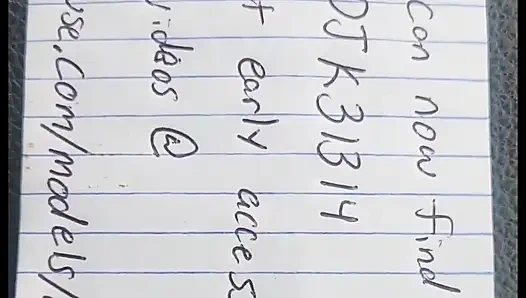 con now find
DJK31314
t early acces
videos @
use.com/models/